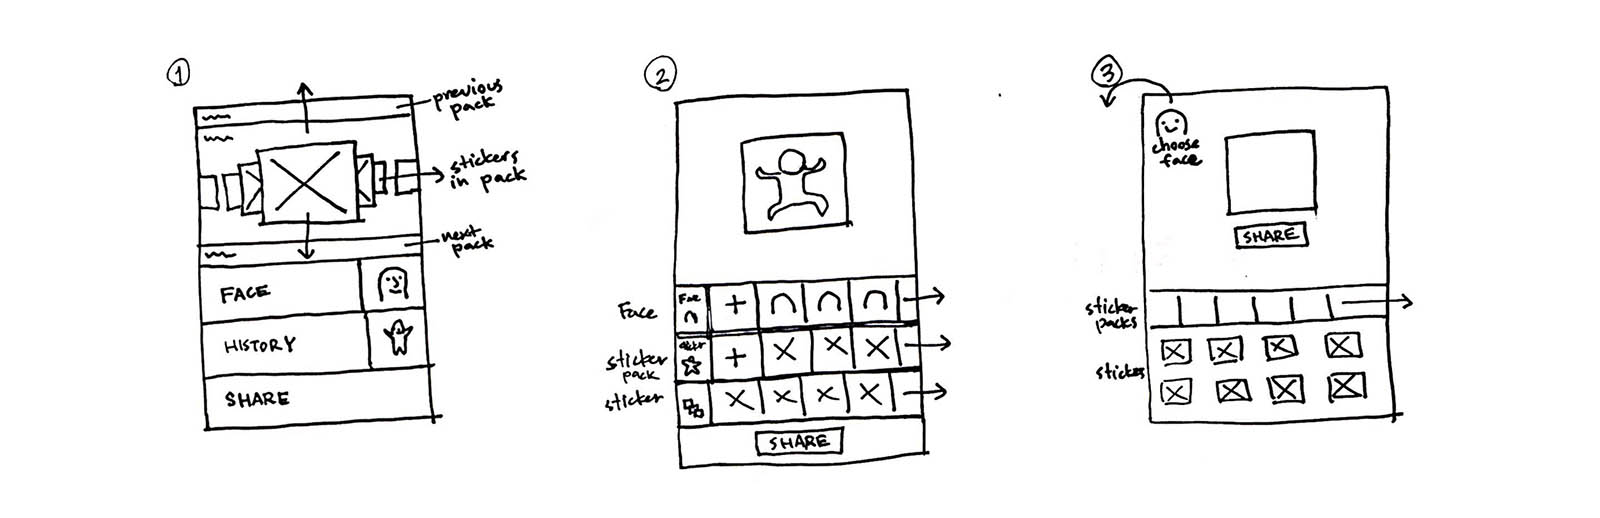 1
previous
pack
stickers
in pack
next
pack
FACE
HISTORY
SHARE
2
Face
Face
sticker
pack
sticker
SHARE
3
choose
face
SHARE
sticker
packs
sticker